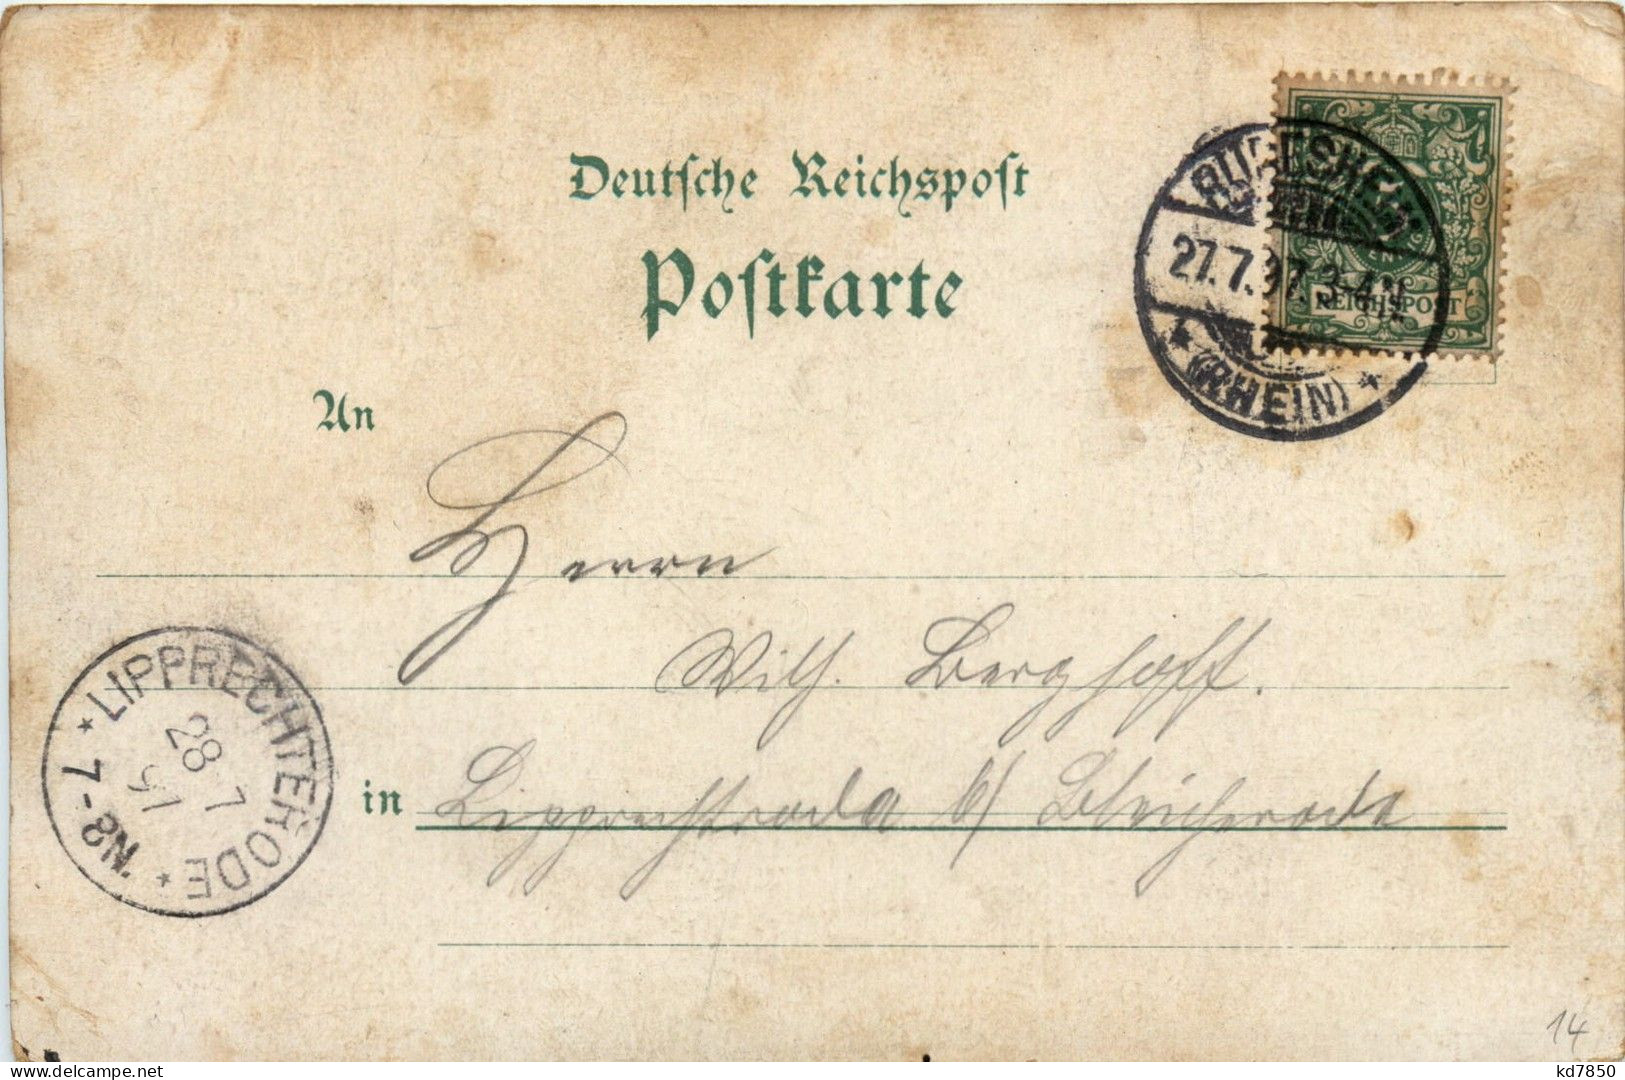 Deutsche Reichspost
Postkarte
RÜDESHEIM
27.7.97. 3-4N.
(RHEIN)
REICHSPOST
An
Herrn
Wilh. Berghoff.
in Lipprechtroda b/ Bleicherode
LIPPRECHTERODE
28 7
97
7-8N.
14
kd7850